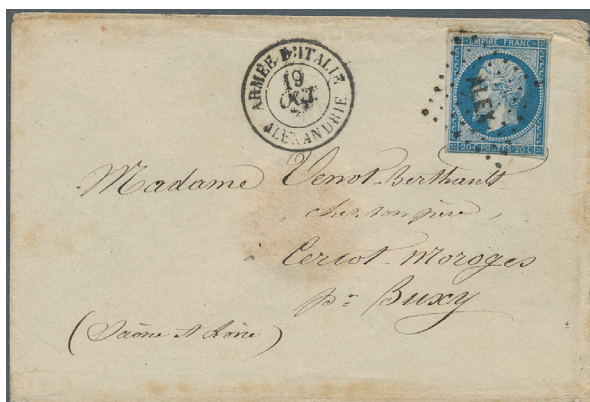 ARMÉE D'ITALIE
19
OCT
ALEXANDRIE
EMPIRE FRANC
ALEX
20 C POSTES 20 C
Madame Venot-Berthault
chez son père,
à Cercot-Moroges
pr Buxy
(Saône et Loire)